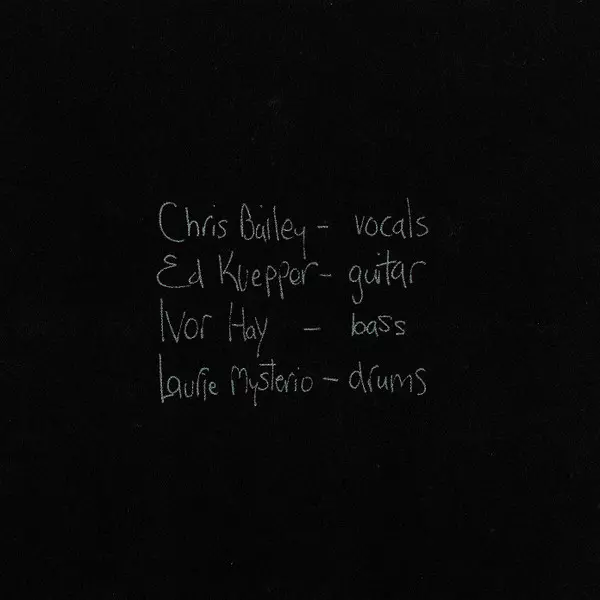 Chris Bailey - vocals
Ed Kuepper - guitar
Ivor Hay - bass
Laurie Mysterio - drums